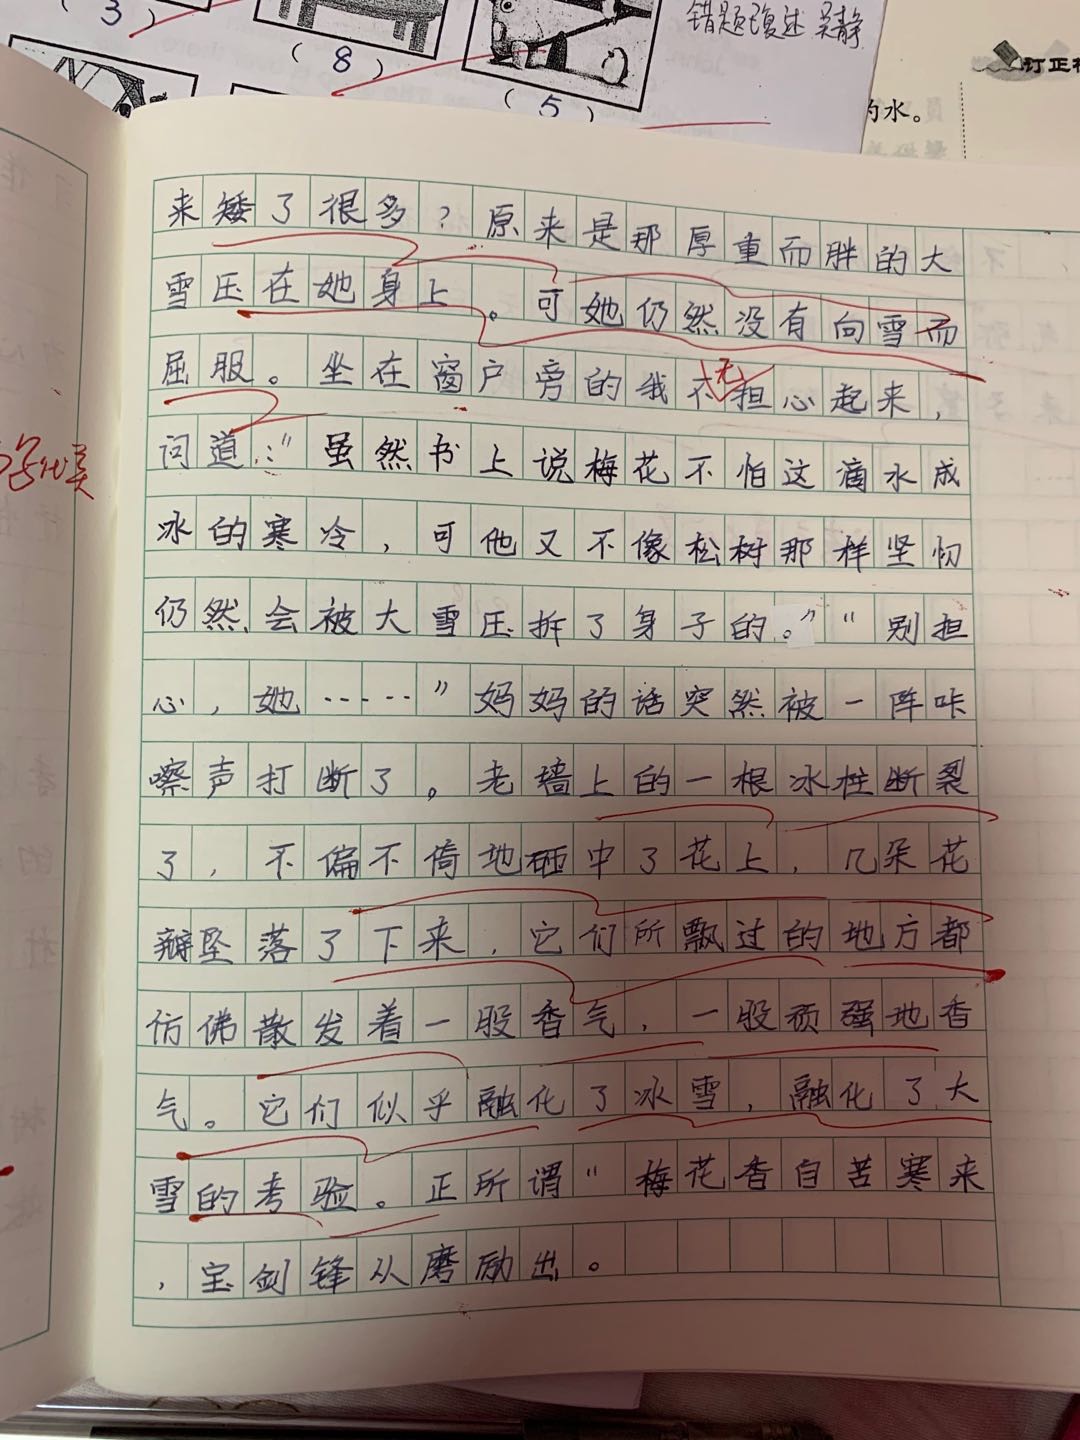 (3)
(8)
(5)
错题复述 吴静
订正
的水。
来矮了很多？原来是那厚重而胖的大
雪压在她身上。可她仍然没有向雪而
屈服。坐在窗户旁的我不无担心起来，
问道：“虽然书上说梅花不怕这滴水成
冰的寒冷，可他又不像松树那样坚忉
仍然会被大雪压拆了身子的。”“别担
心，她……”妈妈的话突然被一阵咔
嚓声打断了。老墙上的一根冰柱断裂
了，不偏不倚地砸中了花上，几朵花
瓣坠落了下来，它们所飘过的地方都
仿佛散发着一股香气，一股顽强地香
气。它们似乎融化了冰雪，融化了大
雪的考验。正所谓“梅花香自苦寒来
，宝剑锋从磨励出。